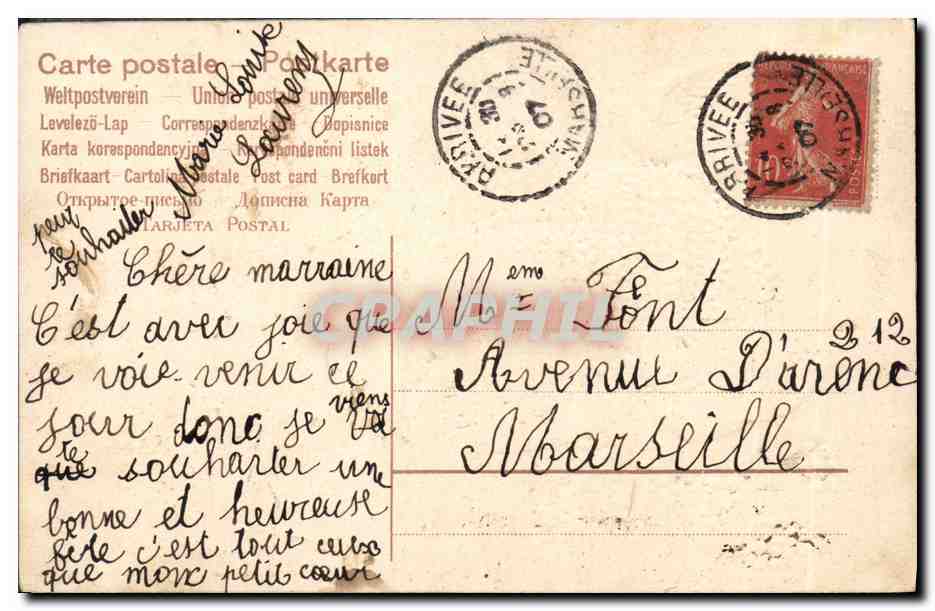 Carte postale – Postkarte
Weltpostverein – Union postale universelle
Levelező-Lap – Correspondenzkarte – Dopisnice
Karta korespondencyjna – Korespondenční listek
Briefkaart – Cartolina postale – Post card – Brefkort
Открытое письмо – Дописна Карта
TARJETA POSTAL
Marie Louise
Laurens
peut
te
souhaiter
Chère marraine
C'est avec joie que
je voie venir ce
jour donc je viens
te souhaiter une
bonne et heureuse
fête c'est tout ceux
que mon petit cœur
Meme Font
Avenue D'arenc 212
Marseille
ARRIVEE
MARSEILLE
07
ARRIVEE
MARSEILLE
07
FRANÇAISE
10
POSTES
GRAPHIL